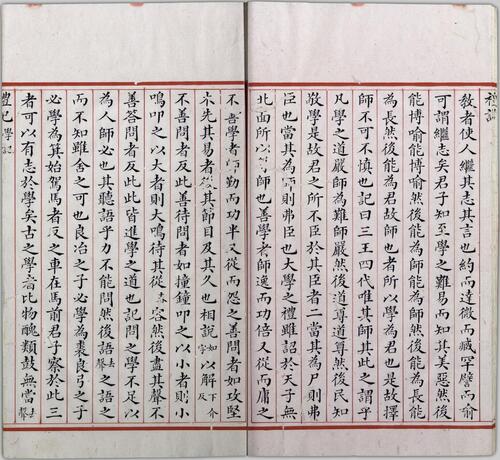 禮記
教者使人繼其志其言也約而達微而臧罕譬而喻
可謂繼志矣君子知至學之難易而知其美惡然後
能博喻能博喻然後能為師能為師然後能為長能
為長然後能為君故師也者所以學為君也是故擇
師不可不慎也記曰三王四代唯其師其此之謂乎
凡學之道嚴師為難師嚴然後道尊道尊然後民知
敬學是故君之所不臣於其臣者二當其為尸則弗
臣也當其為師則弗臣也大學之禮雖詔於天子無
北面所以尊師也善學者師逸而功倍又從而庸之
不善學者師勤而功半又從而怨之善問者如攻堅
木先其易者後其節目及其久也相說如字以解下介反
不善問者反此善待問者如撞鐘叩之以小者則小
鳴叩之以大者則大鳴待其從舂容然後盡其聲不
善答問者反此此皆進學之道也記問之學不足以
為人師必也其聽語乎力不能問然後語去聲之語之
而不知雖舍之可也良冶之子必學為裘良弓之子
必學為箕始駕馬者反之車在馬前君子察於此三
者可以有志於學矣古之學者比物醜類鼓無當去聲
禮記學記